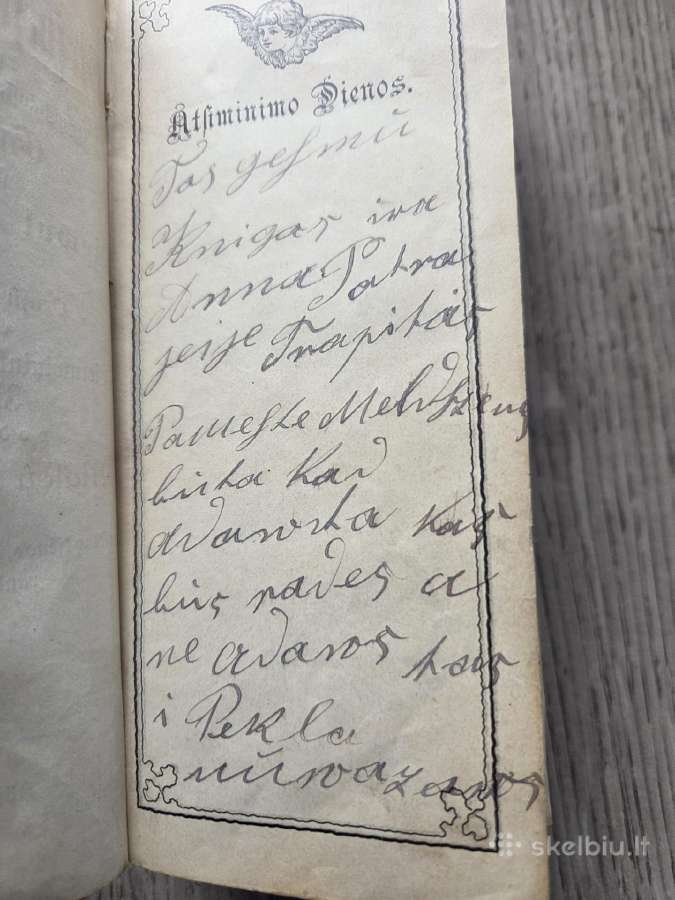 Atſiminimo Dienos.
Tos geſmu
Knigas ira
Anna Patra
jeije Trapitas
Pameſte Meldszeus
buta kad
adawsta kas
bus rades a
ne adawos tas
i Pekla
nuwazawos
skelbiu.lt